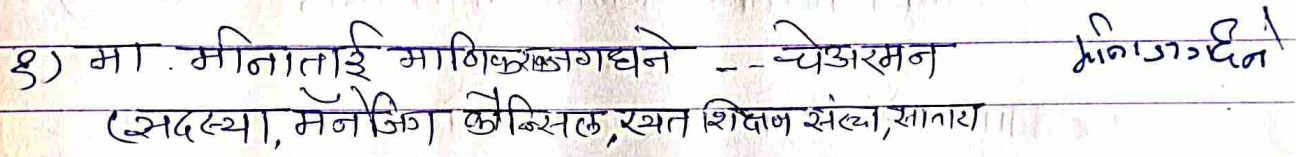 १) मा. मीनाताई माणिकराव जगधने -- चेअरमन
(सदस्या, मॅनेजिंग कौन्सिल, रयत शिक्षण संस्था, सातारा